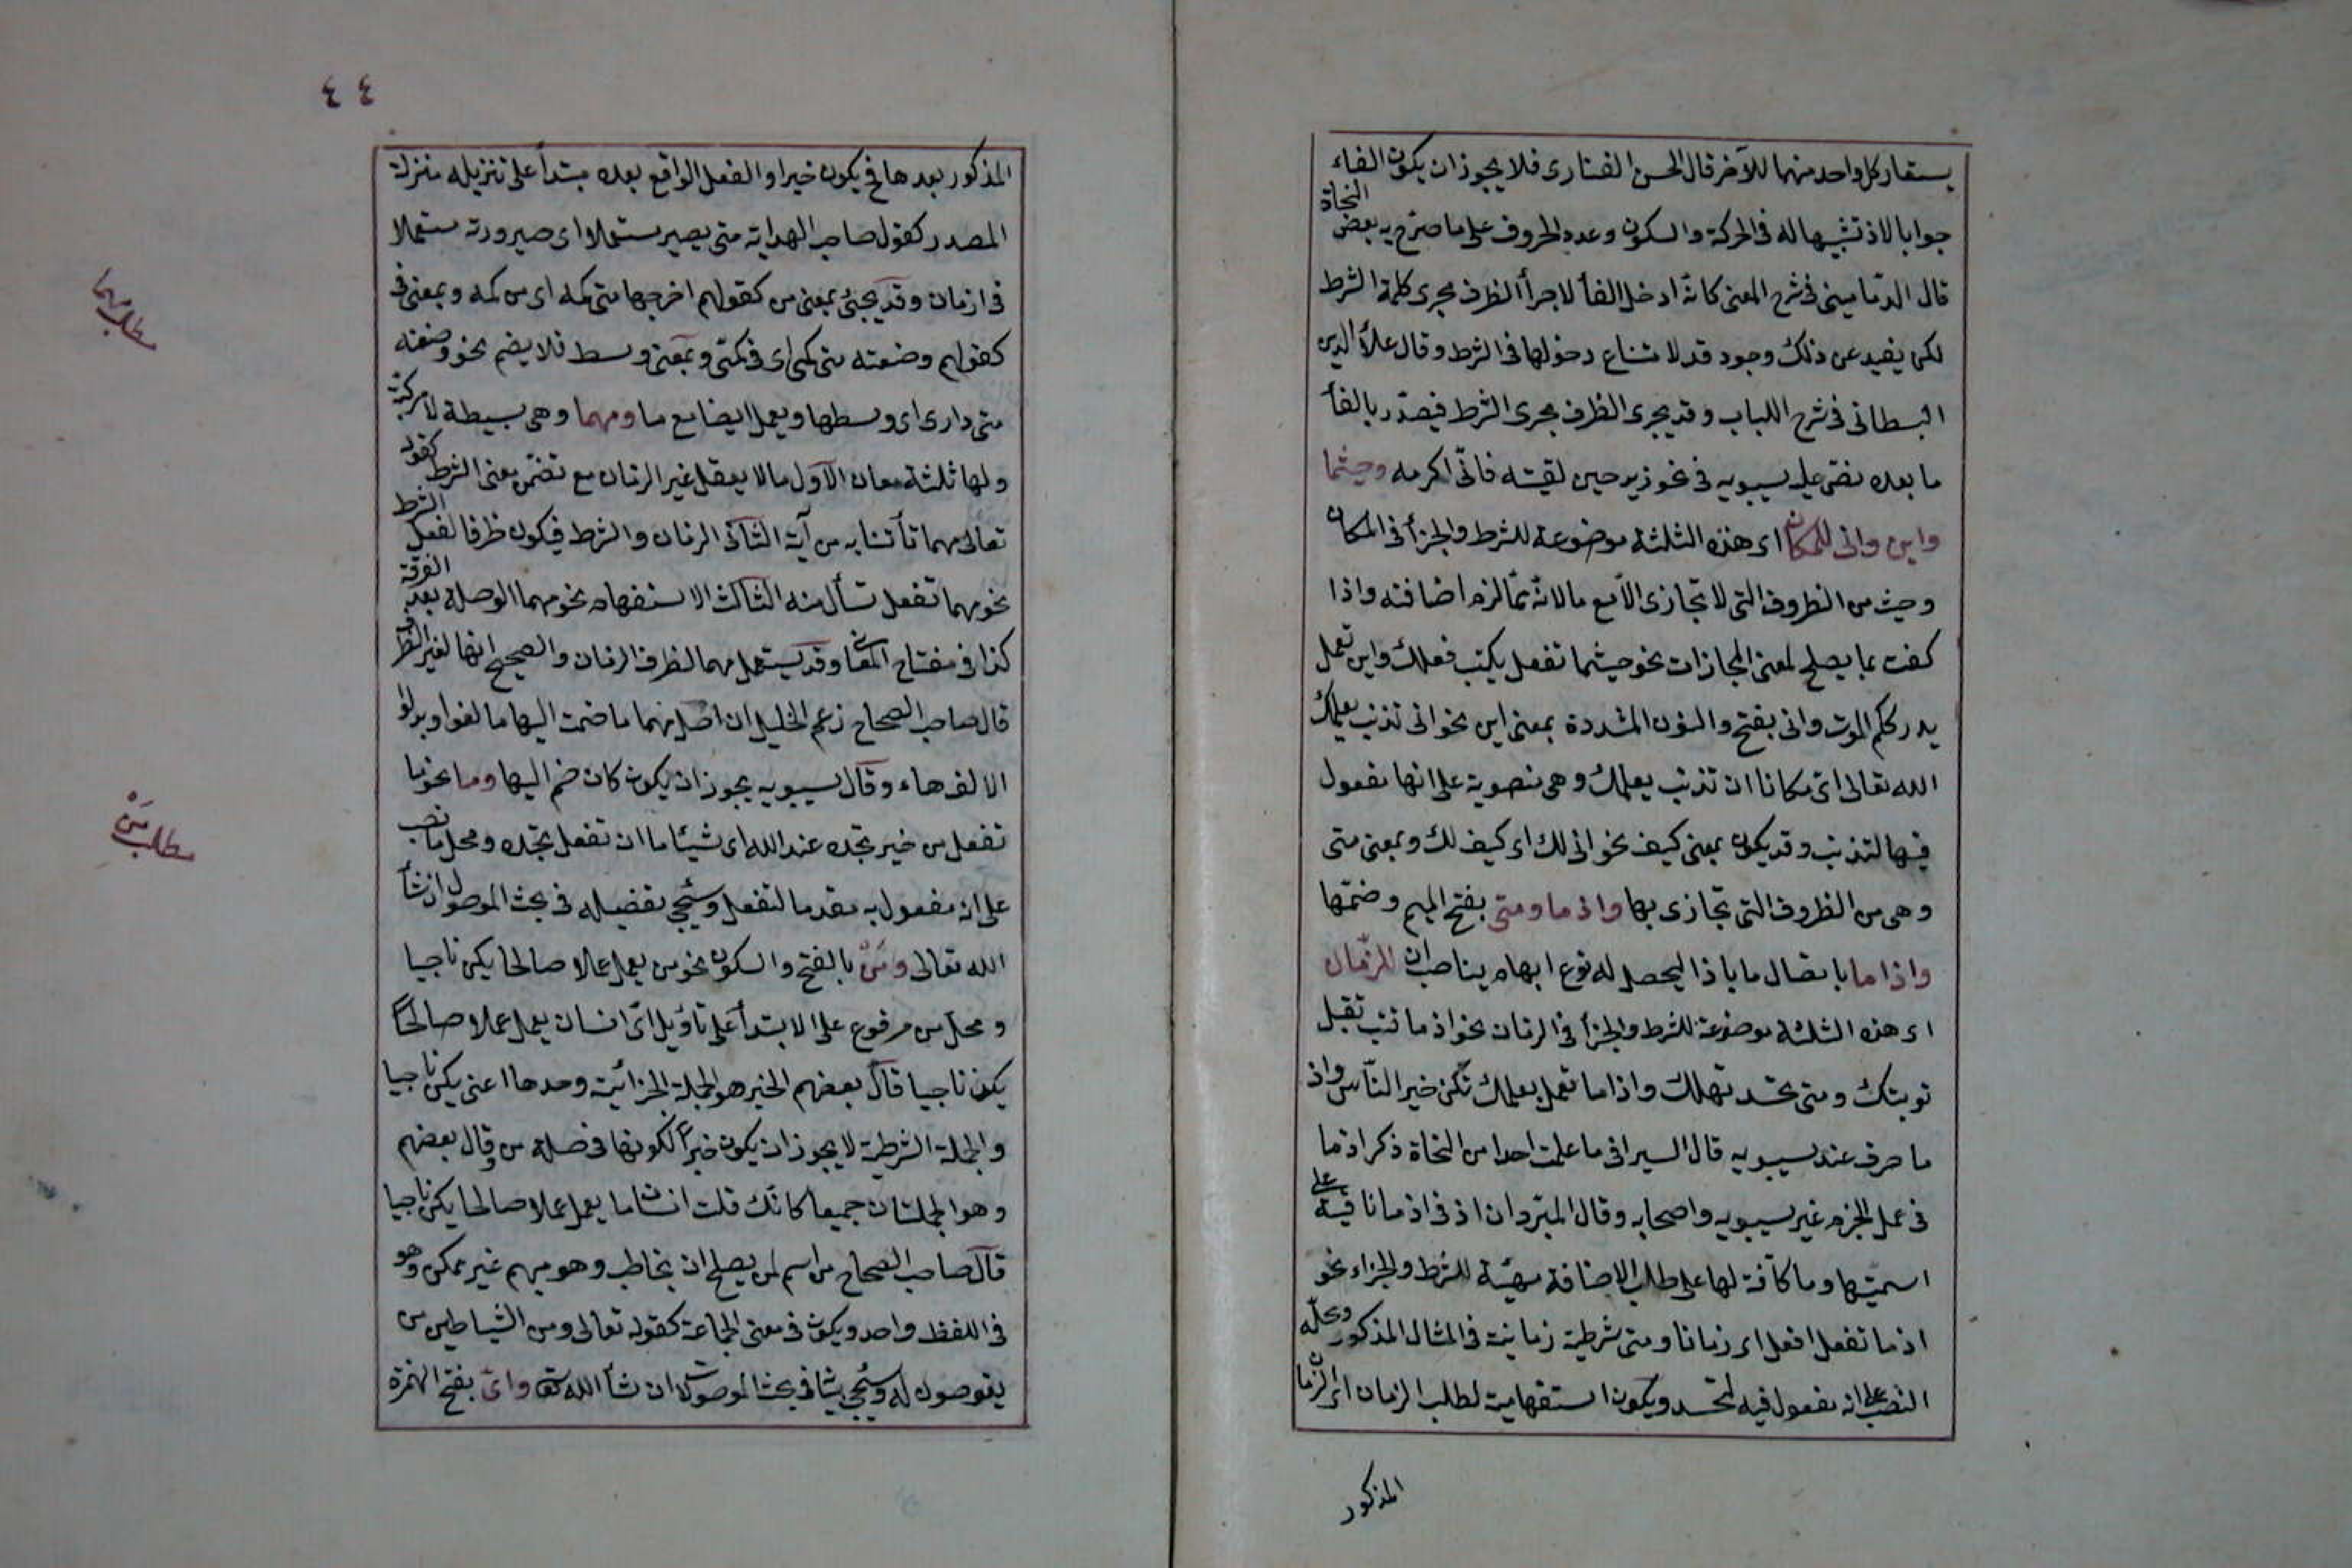 يستعار كل واحد منهما للآخر قال الحسن الفنارى فلا يجوز ان يكون الفاء
جوابا لاذ تشبيها له فى الحركة والسكون وعدد الحروف على ما صرّح به بعض النحاة
قال الدمامينى فى شرح المغنى كانّه ادخل الفأ لاجرأ الظرف مجرى كلمة الشرط
لكن يفيد عن ذلك وجود قد لامتناع دخولها فى الشرط وقال علاء الدين
البسطانى فى شرح اللباب وقد يجرى الظرف مجرى الشرط فيصدّر بالفأ
ما بعده نصّ عليه سيبويه فى نحو زيد حين لقيته فانّى اكرمه وحيثما
واين وانى للمكان اى هذه الثلثة موضوعة للشرط والجزأ فى المكان
وحيث من الظروف التى لا تجازى الّا مع ما لانّه ممّا لزم اضافته واذا
كفت بما يصلح لمعنى المجازات نحو حيثما تفعل يكتب فعلك واين تعمل
يدرككم الموت وانى بفتح والنون المشددة بمعنى اين نحو انى تذنب يعلمك
الله تعالى اى مكانا ان تذنب يعلمك وهى منصوبة على انها مفعول
فيها لتذنب وقد يكون بمعنى كيف نحو انى لك اى كيف لك وبمعنى متى
وهى من الظروف التى تجازى بها واذ ما ومتى بفتح الميم وضمّها
واذا ما باتصال ما باذا ليحصل له نوع ابهام يناصب ان للزمان
اى هذه الثلثة موضوعة للشرط والجزأ فى الزمان نحو اذ ما تتب تقبل
توبتك ومتى تحسد تهلك واذا ما تعمل بعلمك تكن خير النّاس واذ
ما حرف عند سيبويه قال السيرافى ما علمت احدا من النحاة ذكر اذ ما
فى عمل الجزم غير سيبويه واصحابه وقال المبرّد ان اذ فى اذ ما باقية على
اسميّتها وما كافّة لها على طلب الاضافة مهيّئة للشرط والجزاء نحو
اذ ما تفعل افعل اى زمانا ومتى شرطية زمانية فى المثال المذكور ومحلّه
النصب على انه مفعول فيه لتحسد ويكون استفهامية لطلب الزمان اى الزّمان
المذكور
٤٤
المذكور بعدها فح يكون خبرا والفعل الواقع بعده مبتدأ على تنزيله منزلة
المصدر كقول صاحب الهداية متى يصير مستعملا اى صيرورته مستعملا
فى ازمان وقد يجئ بمعنى من كقولهم اخرجها متى كمه اى من كمه وبمعنى فى
كقولهم وضعته متى كمى اى فى كمّى وبمعنى وسط فلا يضم نحو وضعته
متى دارى اى وسطها ويعمل ايضا مع ما ومهما وهى بسيطة لا مركبة
ولها ثلثة معان الاول ما لا يعقل غير الزمان مع تضمّن معنى الشرط كقوله
تعالى مهما تأتنا به من آية الثانى الزمان والشرط فيكون ظرفا لفعل الشرط
نحو مهما تفعل تسأل منه الثالث الاستفهام نحو مهما الوصلة بعد الفرقة
كذا فى مفتاح المغانى وقد يستعمل مهما لظرف الزمان والصحيح انها لغير الظرف
قال صاحب الصحاح زعم الخليل ان اصل مهما ما ضمت اليها ما لغوا وبدلوا
الالف هاء وقال سيبويه يجوز ان يكون كان ضم اليها وما نحو ما
تفعل من خير تجده عند الله اى شيئا ما ان تفعل تجده ومحل ما نصب
على انه مفعول به مقدما لتفعل وسيجئ تفضيله فى بحث الموصول ان شأ
الله تعالى ومَنْ بالفتح والسكون نحو من يعمل عملا صالحا يكن ناجيا
ومحل من مرفوع على الابتدأ على تاويل اى انسان يعمل عملا صالحا
يكن ناجيا قال بعضهم الخبر هو الجملة الجزائية وحدها اعنى يكن ناجيا
والجملة الشرطية لا يجوز ان يكون خبراً لكونها فى صلة من وقال بعضهم
وهو الجملتان جميعا كانّك قلت انسانا ما يعمل عملا صالحا يكن ناجيا
قال صاحب الصحاح من اسم لمن يصلح ان يخاطب وهو مبهم غير ممكن وهو
فى اللفظ واحد ويكون فى معنى الجماعة كقوله تعالى ومن الشياطين من
يغوصون له وسيجئ بيانا فى بحث الموصولات ان شأ الله تعا واىّ بفتح الهمزة
مطلب مهما
مطلب مَنْ